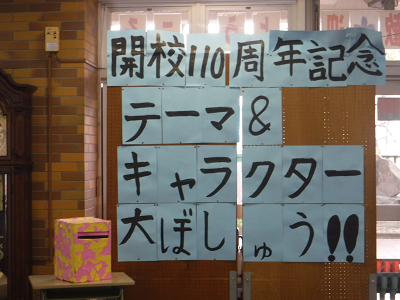 開校110周年記念
テーマ&
キャラクター
大ぼしゅう!!